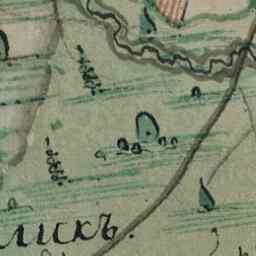 лискъ.